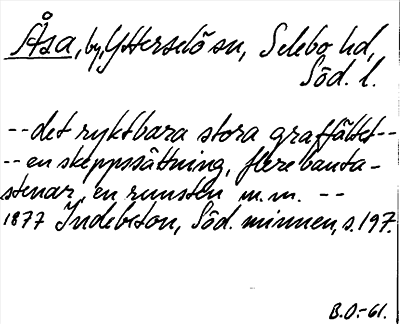 Åsa, by, Ytterselö sn, Selebo hd,
Söd. l.
-- det ryktbara stora graffältet --
-- en skeppssättning, flere bauta-
stenar, en runsten m.m. --
1877 Indebetou, Söd. minnen, s. 197.
B.O.-61.